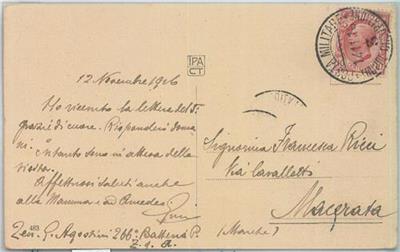 TPA
CT
12 Novembre 1916
Ho ricevuto la lettera del
grazie di cuore. Risponderò doma
ni. Intanto sono in attesa della
vostra.
Affettuosi saluti anche
alla Mamma e ad Amedeo
483
Ten. G. Agostini 266ª Batteria P.
Z. g. a.
POSTA MILITARE
Signorina Francesca Ricci
Via Cavallotti
Macerata
(Marche)